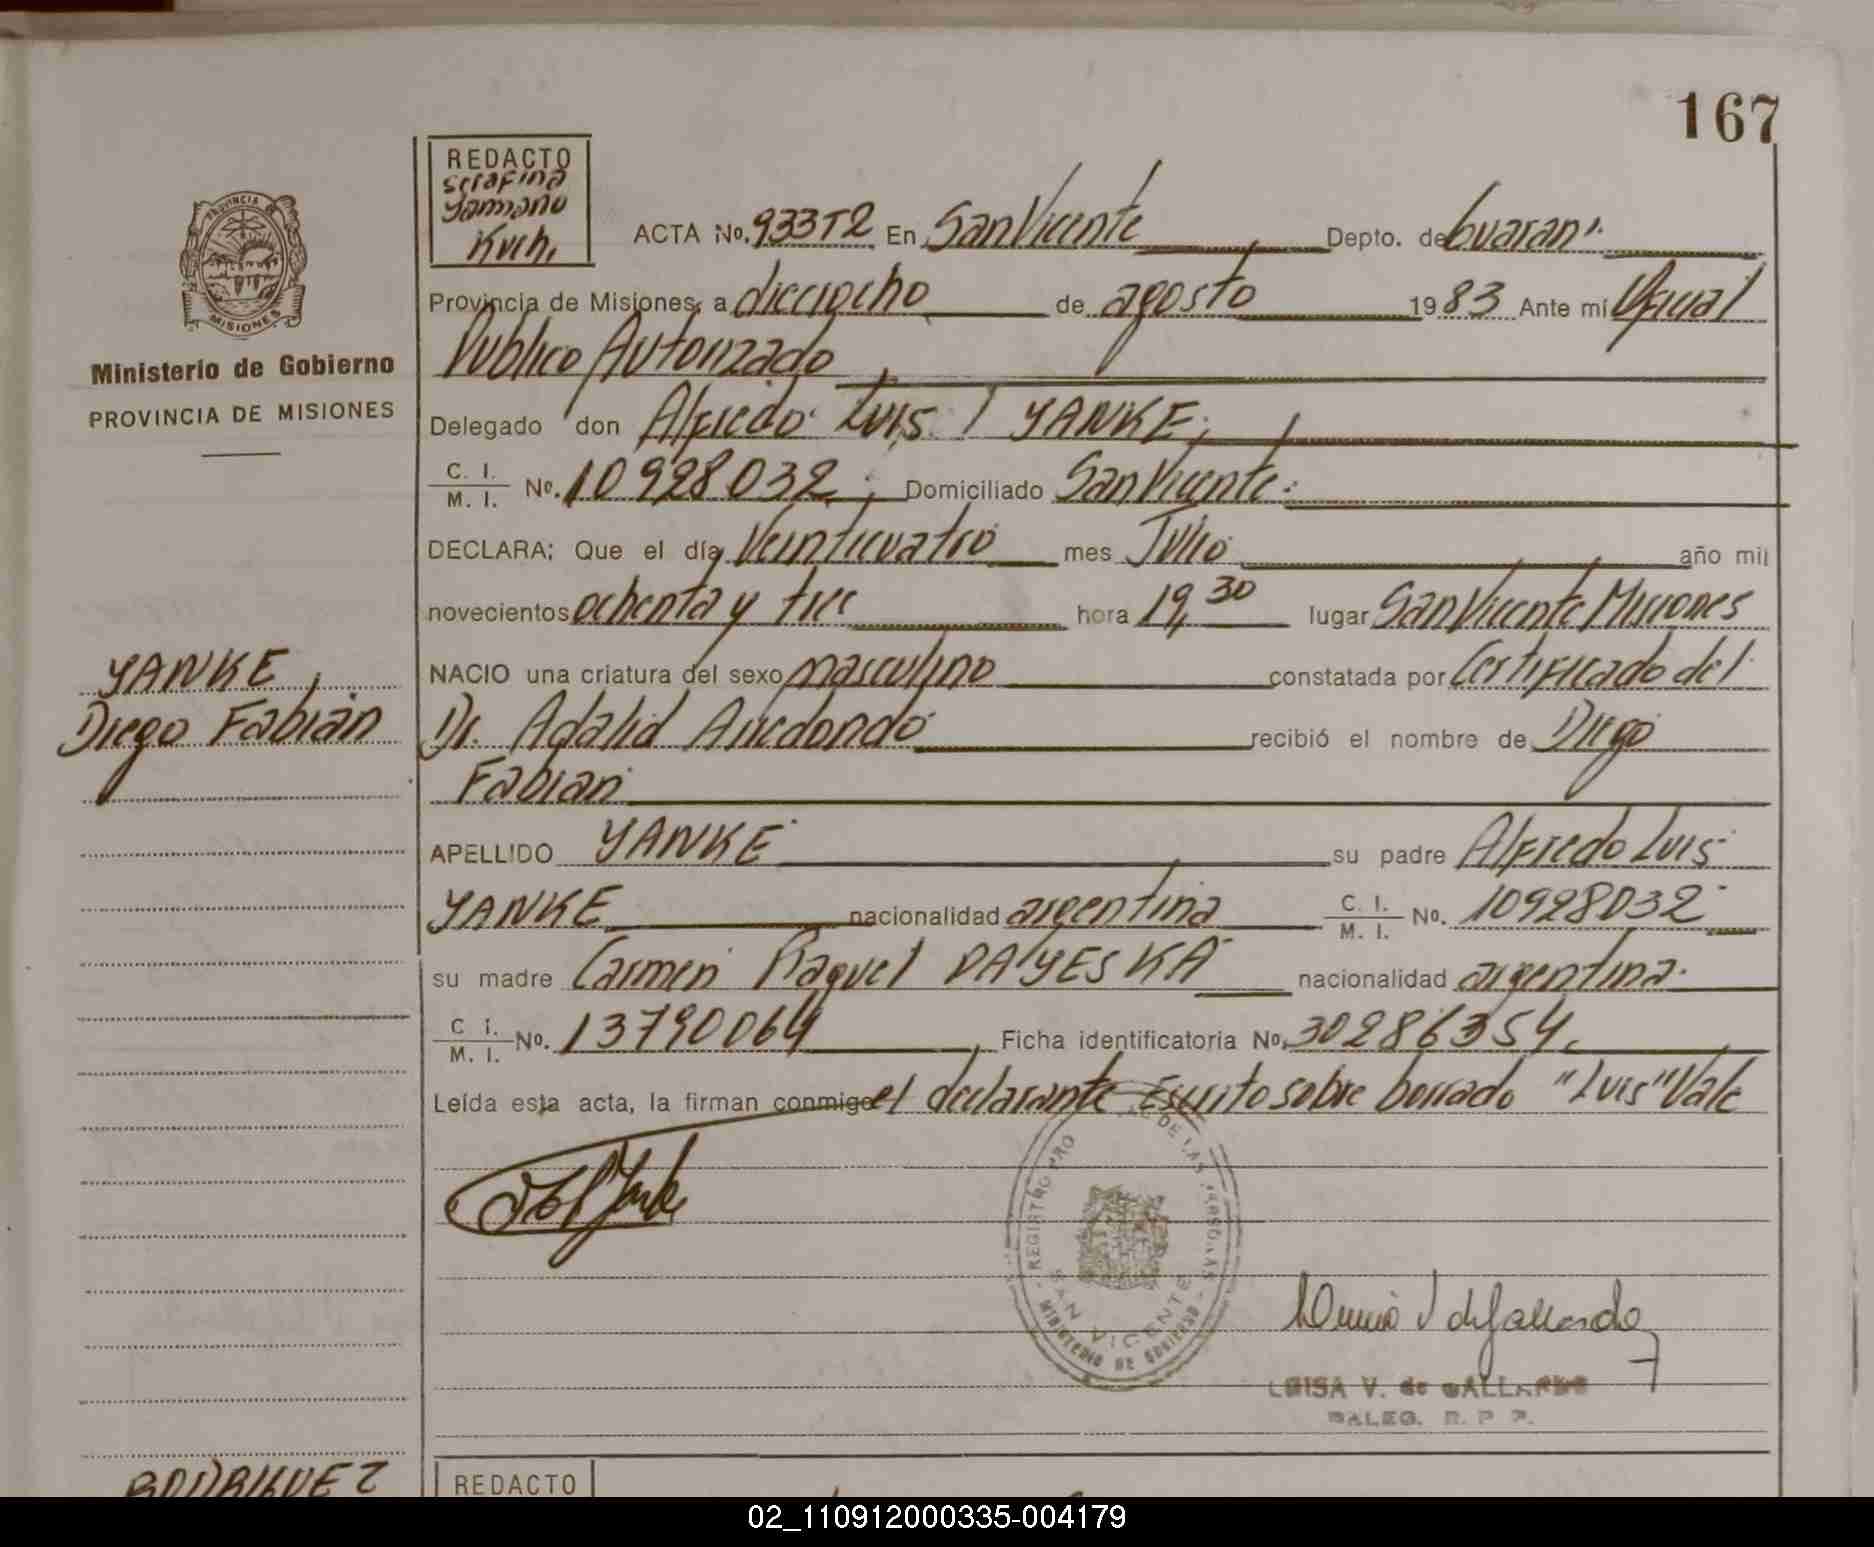 167
REDACTO
Serafina
Yamano
Kuch.
PROVINCIA DE
MISIONES
Ministerio de Gobierno
PROVINCIA DE MISIONES
ACTA No. 933T2 En San Vicente Depto. de Guarani
Provincia de Misiones, a dieciocho de agosto 1983 Ante mí Oficial
Publico Autorizado
Delegado don Alfredo Luis YANKE,
C. I.
M. I. No. 10928032, Domiciliado San Vicente.
DECLARA; Que el día Veinticuatro mes Julio año mil
novecientos ochenta y tres hora 19,30 lugar San Vicente Misiones
NACIO una criatura del sexo masculino constatada por Certificado del
Dr. Adalid Arredondo recibió el nombre de Diego
Fabian
YANKE,
Diego Fabian
APELLIDO YANKE su padre Alfredo Luis
YANKE nacionalidad argentina C. I.
M. I. No. 10928032
su madre Carmen Raquel DAYESKA nacionalidad argentina.
C. I.
M. I. No. 13790064, Ficha identificatoria No. 30286354.
Leída esta acta, la firman conmigo el declarante Escrito sobre borrado "Luis" Vale
REGISTRO PRO DE LAS PERSONAS
SAN VICENTE
MINISTERIO DE GOBIERNO
LUISA V. de GALLARDO
DALEG. R. P. P.
RODRIGUEZ
REDACTO
02_110912000335-004179